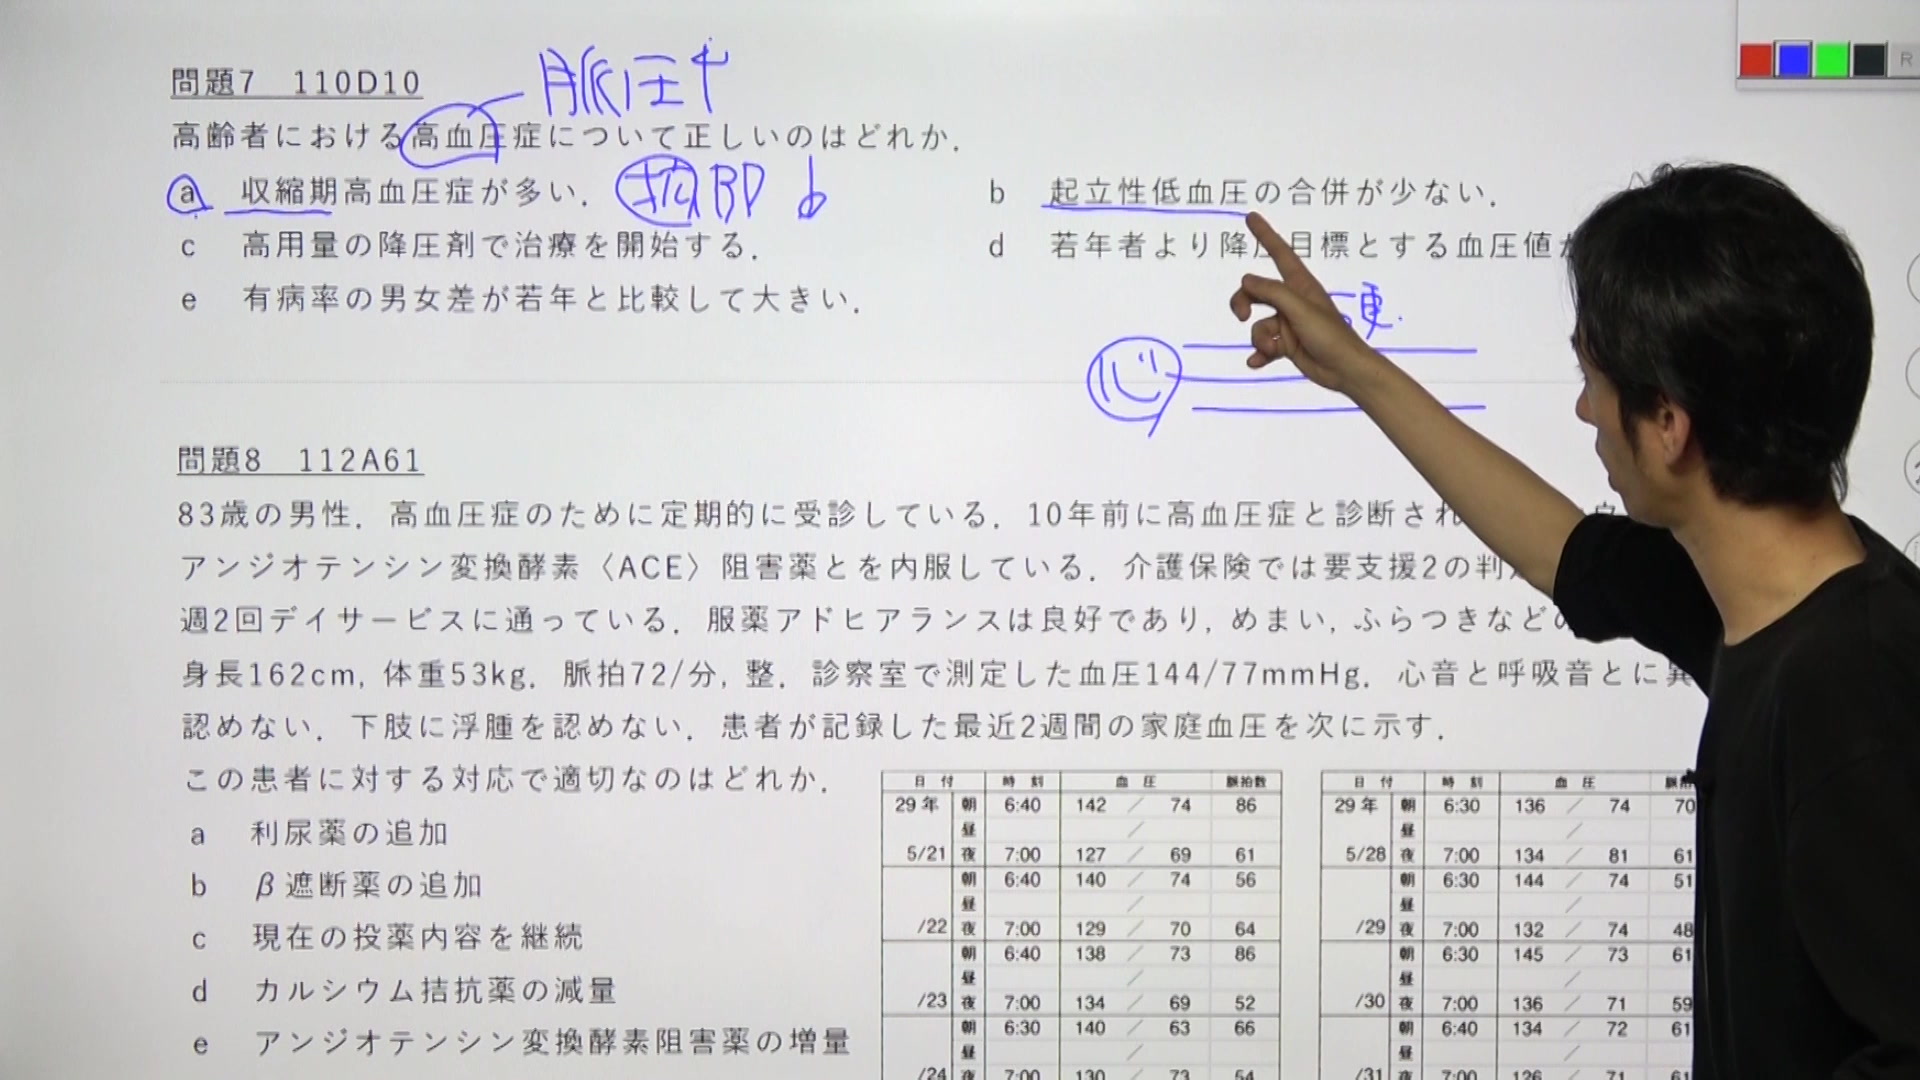 脈圧↑
問題7 110D10
高齢者における高血圧症について正しいのはどれか．
a 収縮期高血圧症が多い．
拡BP↓
b 起立性低血圧の合併が少ない．
c 高用量の降圧剤で治療を開始する．
d 若年者より降圧目標とする血圧値が
e 有病率の男女差が若年と比較して大きい．
硬
心
問題8 112A61
83歳の男性．高血圧症のために定期的に受診している．10年前に高血圧症と診断され
アンジオテンシン変換酵素〈ACE〉阻害薬とを内服している．介護保険では要支援2の判定
週2回デイサービスに通っている．服薬アドヒアランスは良好であり, めまい, ふらつきなどの
身長162cm, 体重53kg．脈拍72/分, 整．診察室で測定した血圧144/77mmHg．心音と呼吸音とに異
認めない．下肢に浮腫を認めない．患者が記録した最近2週間の家庭血圧を次に示す．
この患者に対する対応で適切なのはどれか．
a 利尿薬の追加
b β遮断薬の追加
c 現在の投薬内容を継続
d カルシウム拮抗薬の減量
e アンジオテンシン変換酵素阻害薬の増量
日付 時刻 血圧 脈拍数
29年 朝 6:40 142 / 74 86
昼 /
5/21 夜 7:00 127 / 69 61
朝 6:40 140 / 74 56
昼 /
/22 夜 7:00 129 / 70 64
朝 6:40 138 / 73 86
昼 /
/23 夜 7:00 134 / 69 52
朝 6:30 140 / 63 66
昼 /
/24 夜 7:00 130 / 73 54
日付 時刻 血圧 脈拍
29年 朝 6:30 136 / 74 70
昼 /
5/28 夜 7:00 134 / 81 61
朝 6:30 144 / 74 51
昼 /
/29 夜 7:00 132 / 74 48
朝 6:30 145 / 73 61
昼 /
/30 夜 7:00 136 / 71 59
朝 6:40 134 / 72 61
昼 /
/31 夜 7:00 126 / 71 61
R